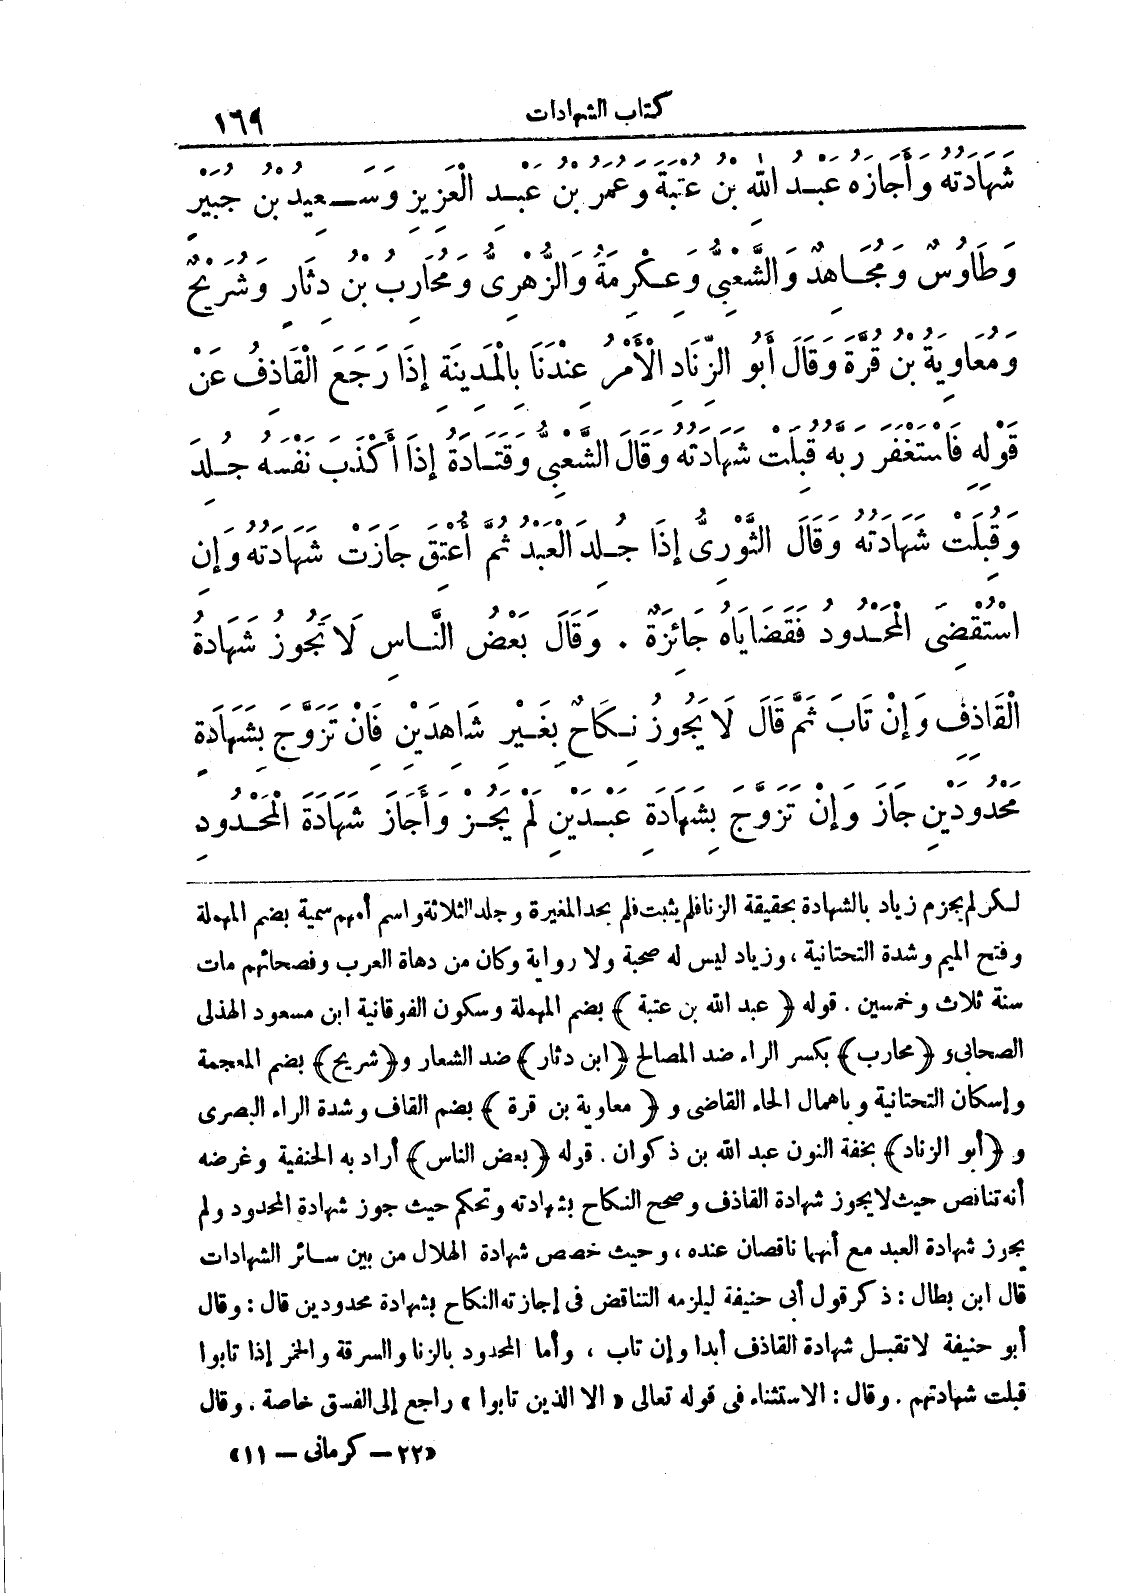 كتاب الشهادات
١٦٩
شَهَادَتَهُ وَأَجَازَهُ عَبْدُ اللهِ بْنُ عُتْبَةَ وَعُمَرُ بْنُ عَبْدِ الْعَزِيزِ وَسَعِيدُ بْنُ جُبَيْرٍ
وَطَاوُسٌ وَمُجَاهِدٌ وَالشَّعْبِيُّ وَعِكْرِمَةُ وَالزُّهْرِيُّ وَمُحَارِبُ بْنُ دِثَارٍ وَشُرَيْحٌ
وَمُعَاوِيَةُ بْنُ قُرَّةَ وَقَالَ أَبُو الزِّنَادِ الْأَمْرُ عِنْدَنَا بِالْمَدِينَةِ إِذَا رَجَعَ الْقَاذِفُ عَنْ
قَوْلِهِ فَاسْتَغْفَرَ رَبَّهُ قُبِلَتْ شَهَادَتُهُ وَقَالَ الشَّعْبِيُّ وَقَتَادَةُ إِذَا أَكْذَبَ نَفْسَهُ جُلِدَ
وَقُبِلَتْ شَهَادَتُهُ وَقَالَ الثَّوْرِيُّ إِذَا جُلِدَ الْعَبْدُ ثُمَّ أُعْتِقَ جَازَتْ شَهَادَتُهُ وَإِنِ
اسْتُقْضِيَ الْمَحْدُودُ فَقَضَايَاهُ جَائِزَةٌ . وَقَالَ بَعْضُ النَّاسِ لَا تَجُوزُ شَهَادَةُ
الْقَاذِفِ وَإِنْ تَابَ ثُمَّ قَالَ لَا يَجُوزُ نِكَاحٌ بِغَيْرِ شَاهِدَيْنِ فَإِنْ تَزَوَّجَ بِشَهَادَةِ
مَحْدُودَيْنِ جَازَ وَإِنْ تَزَوَّجَ بِشَهَادَةِ عَبْدَيْنِ لَمْ يَجُزْ وَأَجَازَ شَهَادَةَ الْمَحْدُودِ
لكن لم يجزم زياد بالشهادة بحقيقة الزنا فلم يثبت فلم يحد المغيرة وجلد الثلاثة واسم أمهم سمية بضم المهملة
وفتح الميم وشدة التحتانية ، وزياد ليس له صحبة ولا رواية وكان من دهاة العرب وفصحائهم مات
سنة ثلاث وخمسين . قوله ﴿ عبد الله بن عتبة ﴾ بضم المهملة وسكون الفوقانية ابن مسعود الهذلى
الصحابى و ﴿محارب﴾ بكسر الراء ضد المصالح ﴿ابن دثار﴾ ضد الشعار و ﴿شريح﴾ بضم المعجمة
وإسكان التحتانية وباهمال الحاء القاضى و ﴿ معاوية بن قرة ﴾ بضم القاف وشدة الراء البصرى
و ﴿أبو الزناد﴾ بخفة النون عبد الله بن ذكوان . قوله ﴿بعض الناس﴾ أراد به الحنفية وغرضه
أنه تناقض حيث لا يجوز شهادة القاذف وصحح النكاح بشهادته وتحكم حيث جوز شهادة المحدود ولم
يجوز شهادة العبد مع أنهما ناقصان عنده ، وحيث خصص شهادة الهلال من بين سائر الشهادات
قال ابن بطال : ذكر قول أبى حنيفة ليلزمه التناقض فى إجازته النكاح بشهادة محدودين قال : وقال
أبو حنيفة لا تقبل شهادة القاذف أبدا وإن تاب ، وأما المحدود بالزنا والسرقة والخمر إذا تابوا
قبلت شهادتهم . وقال : الاستثناء فى قوله تعالى « الا الذين تابوا » راجع إلى الفسق خاصة . وقال
«٢٢ – كرمانى – ١١»